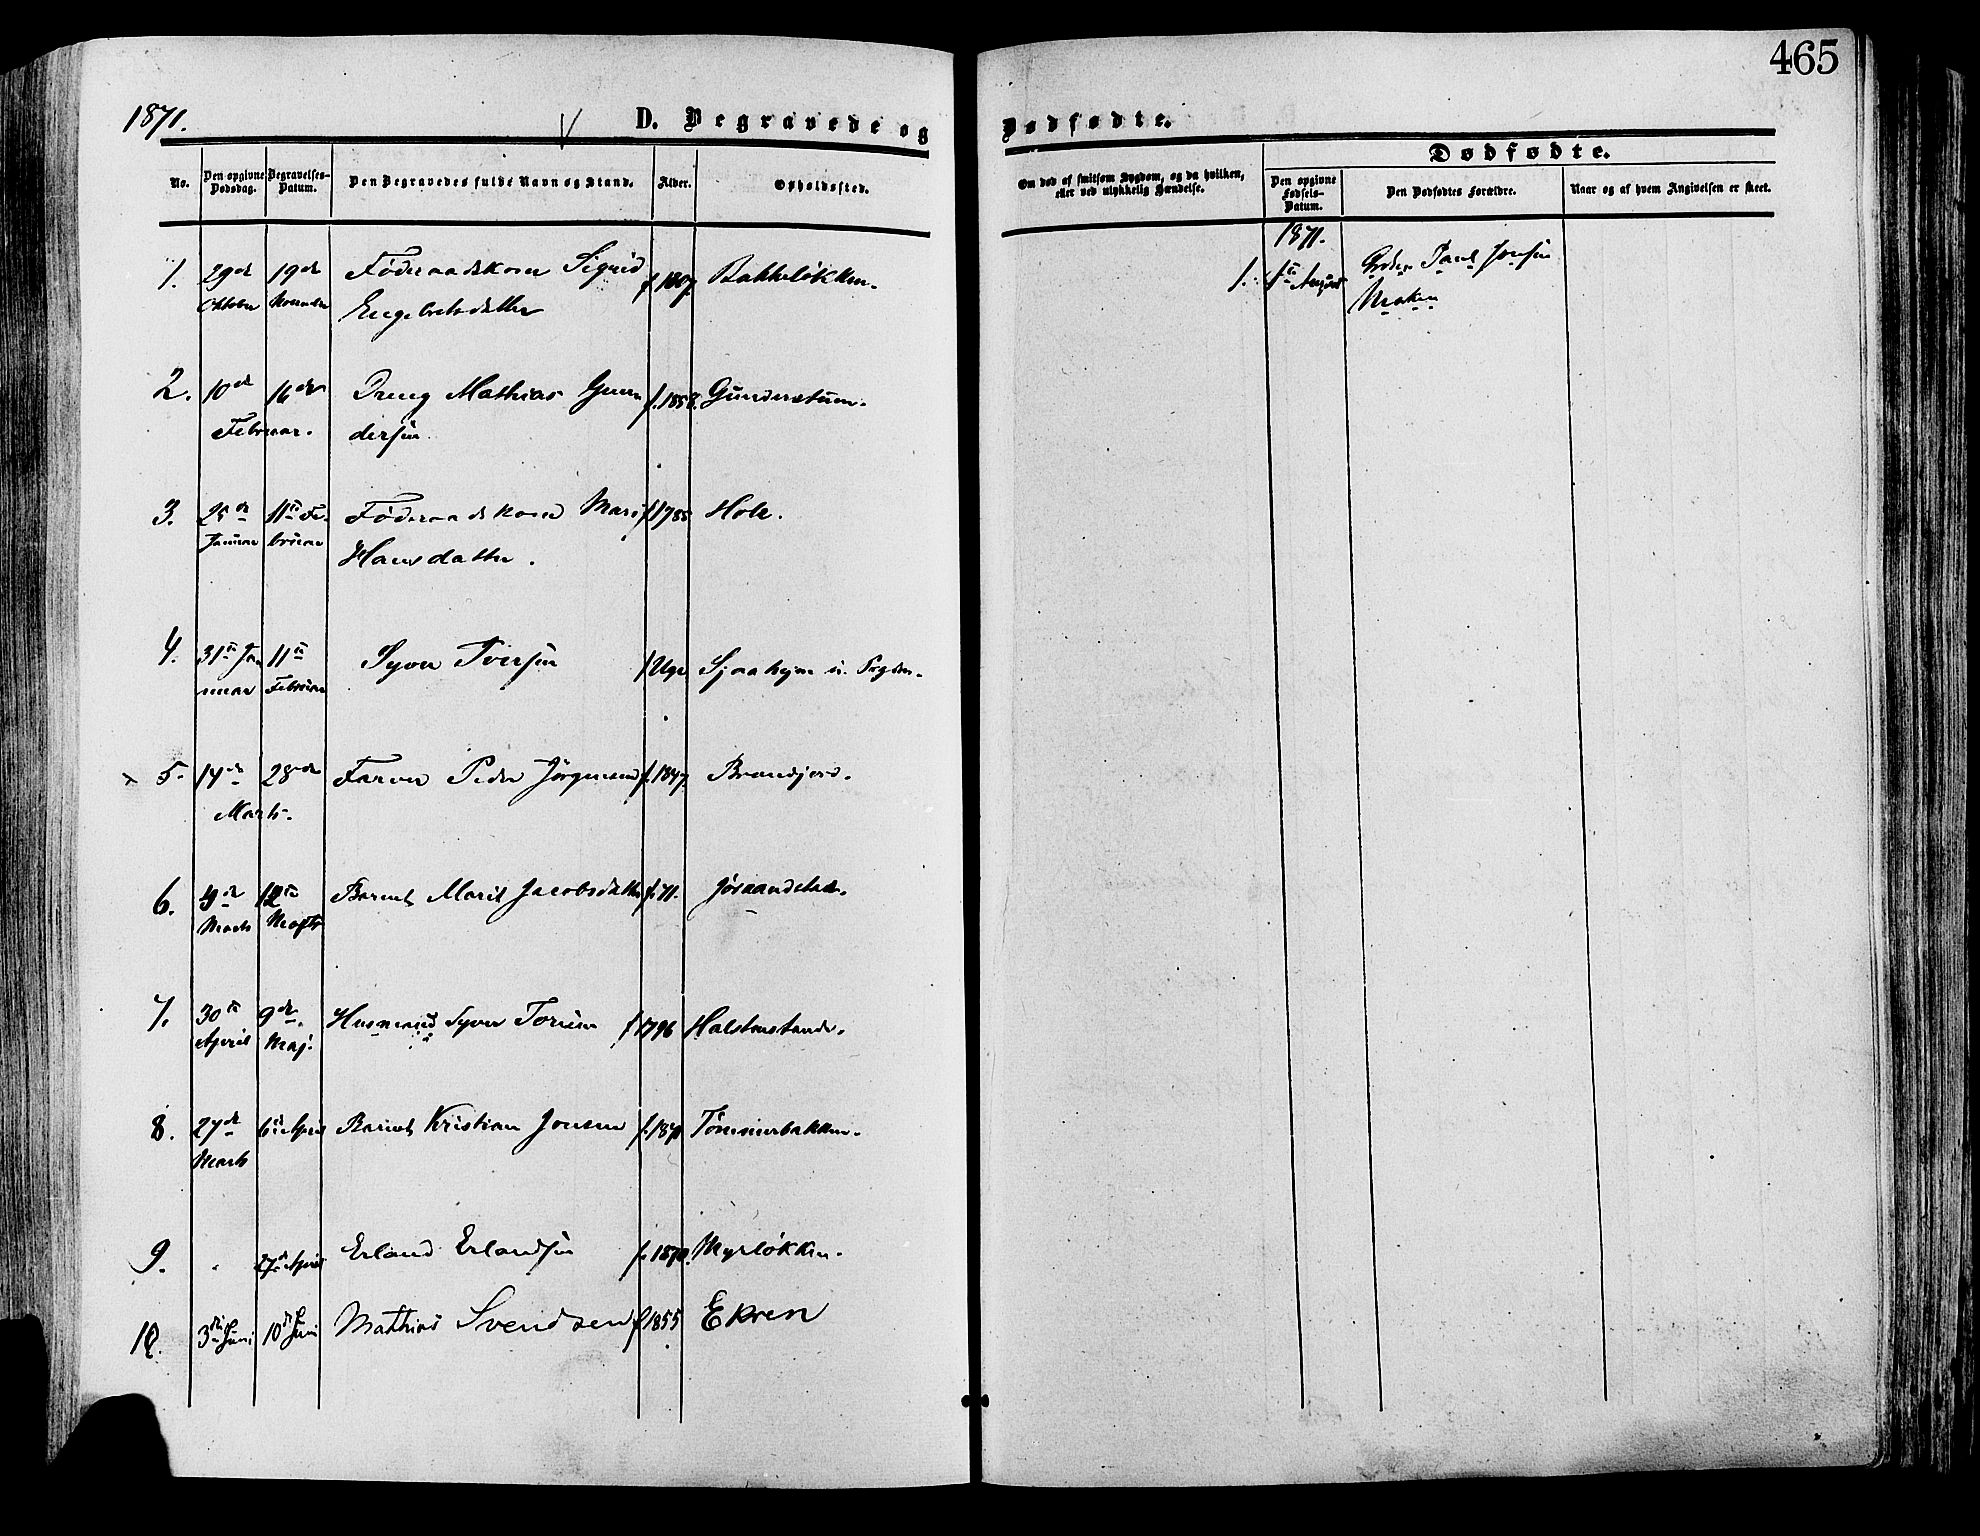 465
1871.
D. Begravede og Dødfødte.
Dødfødte.
No.
Den opgivne Dødsdag.
Begravelses-Datum.
Den Begravedes fulde Navn og Stand.
Alder.
Opholdssted.
Om død af smitsom Sygdom, og da hvilken, eller ved ulykkelig Hændelse.
Den opgivne Fødsels-Datum.
Den Dødfødtes Forældre.
Naar og af hvem Angivelsen er skeet.
1. 29de Oktober 19de November Føderaadskone Sigrid Engebretsdatter f. 1807. Bakkeløkken.
2. 10de 16de Februar. Dreng Mathias Gundersen f. 1858. Gunderstuen.
3. 25de Januar 11te Februar Føderaadskone Mari Hansdatter. f 1785 Hole.
4. 31te Januar 11te Februar Syver Iversen 1 Uge Sjaahejm
5. 14de 28de Marts. Farver Peder Jørgensen f. 1847. Brandjord.
6. Marts 12te Marts Barnet Marit Jacobsdatter f. 71.
7. 30te April 9de Maj. Husmand Syver f 1796
8. 27de Marts 6te April Barnet Kristian Jonsen Tømmerbakken.
9. 27de April Erland Erlandsen f. 1870. Myrløkken.
10. 3die Juni 10de Juni Mathias Svendsen f 1855 Ekren
1871.
1. August Paul